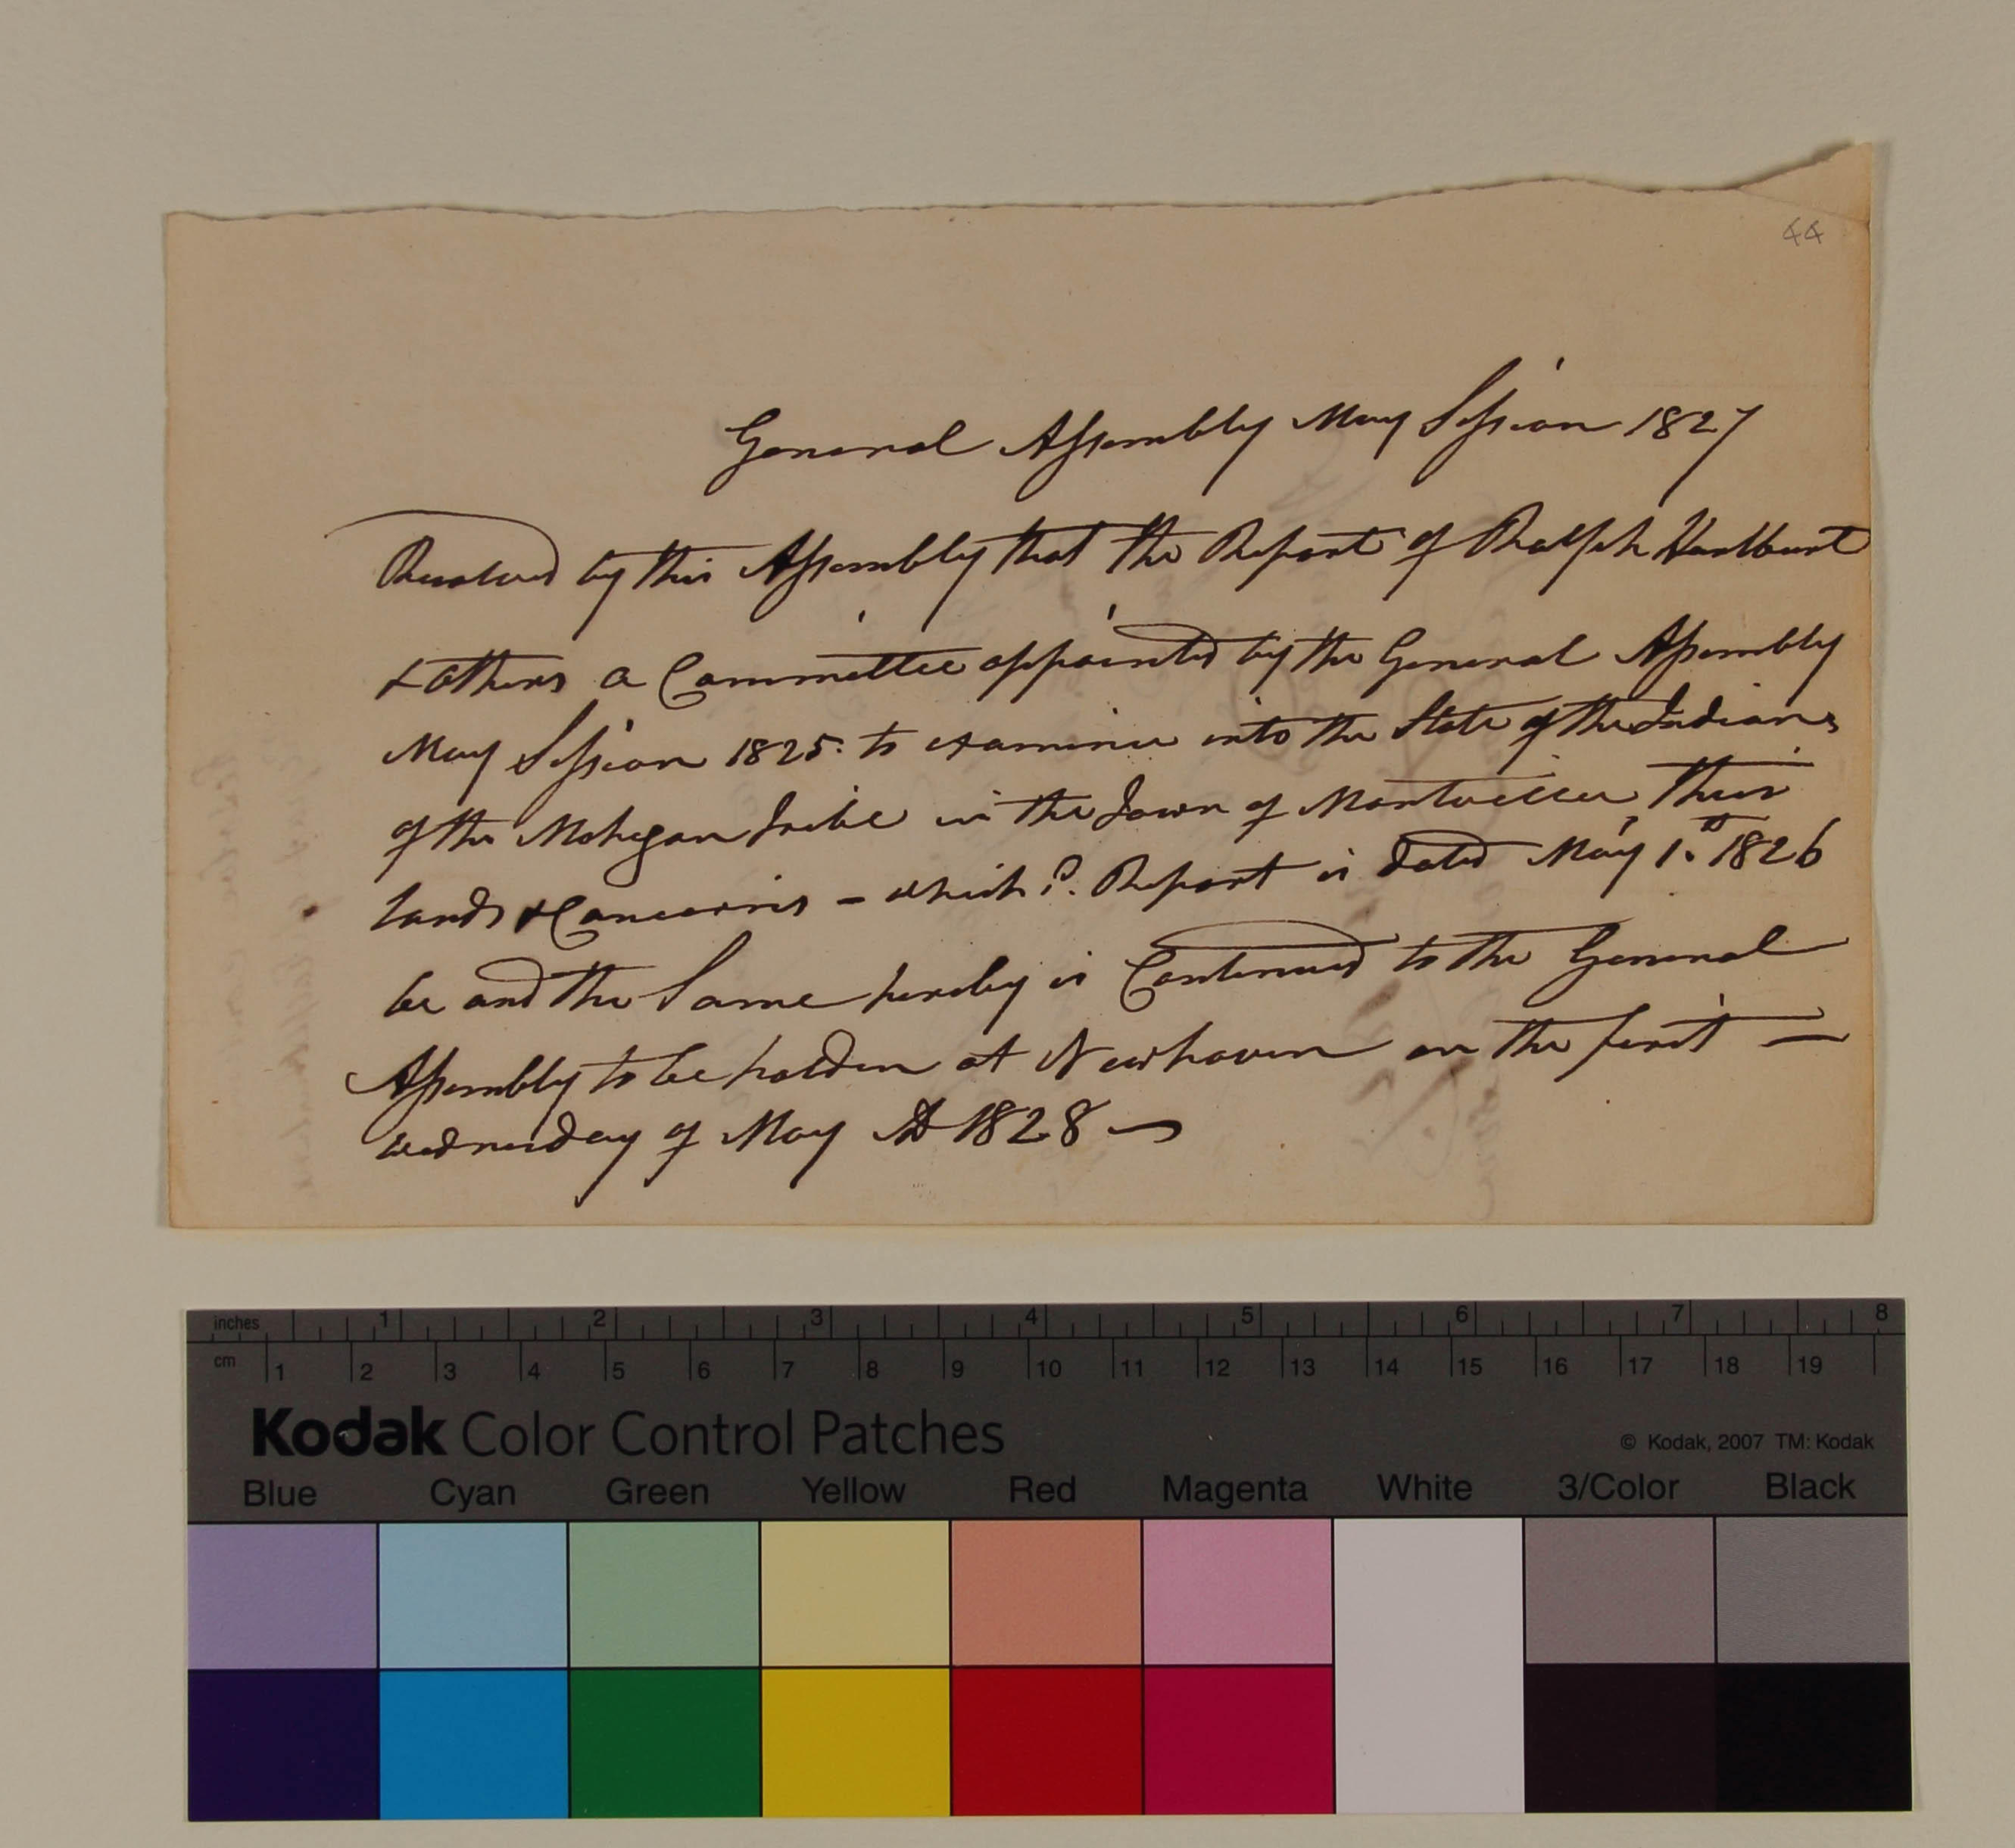 44
General Assembly May Session 1827
Resolved by this Assembly that the Report of Ralph Hurlburt
& others a Committee appointed by the General Assembly
May Session 1825. to examine into the State of the Indians
of the Mohegan Tribe in the Town of Montville their
lands & Concerns – which sd. Report is dated May 1st 1826
be and the Same hereby is Continued to the General
Assembly to be holden at Newhaven on the first —
Wednesday of May AD 1828 —
inches 1 2 3 4 5 6 7 8
cm 1 2 3 4 5 6 7 8 9 10 11 12 13 14 15 16 17 18 19
Kodak Color Control Patches
© Kodak, 2007 TM: Kodak
Blue Cyan Green Yellow Red Magenta White 3/Color Black